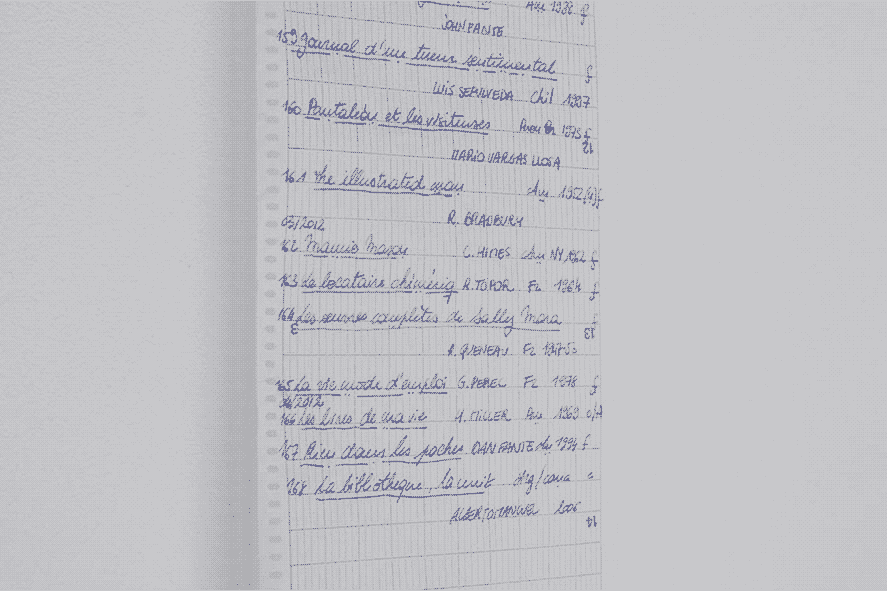 Am 1938 f
JOHN FANTE
159 Journal d'un tueur sentimental f
LUIS SEPULVEDA Chil 1997
160 Pantaleón et les visiteuses 1973 f
12
MARIO VARGAS LLOSA
161 The illustrated man Am 1952 f
R. BRADBURY
03/2012
162 Mamie Mason C. HIMES Am NY 1962 f
163 Le locataire chimériq R. TOPOR Fr 1964 f
164 Les œuvres complètes de Sally Mara f
13
R. QUENEAU Fr
165 La vie mode d'emploi G. PEREC Fr 1978 f
/2012
166 Les livres de ma vie H. MILLER 1969
167 Rien dans les poches DAN FANTE 1994 f
168 La bibliothèque, la nuit Arg/cana
ALBERTO MANGUEL 2006
14